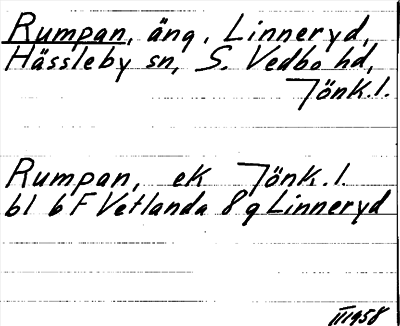 Rumpan, äng, Linneryd,
Hässleby sn, S. Vedbo hd,
Jönk.l.
Rumpan, ek Jönk.l.
bl 6 F Vetlanda 8 g Linneryd
III 1958